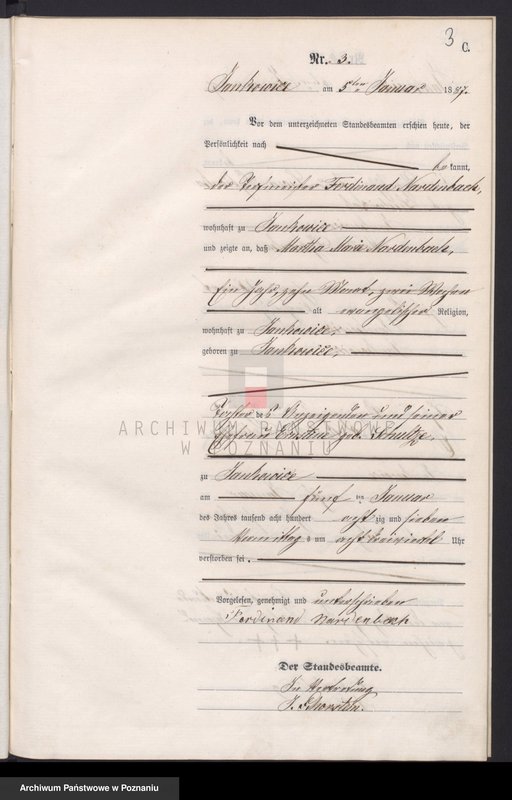 3 C.
Nr. 3.
Jankowice am 5ten Januar 1887.
Vor dem unterzeichneten Standesbeamten erschien heute, der
Persönlichkeit nach
be kannt,
der Ferdinand Nardenbach,
wohnhaft zu Jankowice
und zeigte an, daß Martha Maria Nardenbach,
ein Jahr, zehn Monat, zwei Wochen
alt evangelischer Religion,
wohnhaft zu Jankowice,
geboren zu Jankowice,
Tochter des Anzeigenden und seiner
Ehefrau geb. Schultz,
ARCHIWUM PAŃSTWOWE
W POZNANIU
zu Jankowice
am fünf ten Januar
des Jahres tausend acht hundert acht zig und sieben
Vormittags um acht dreiviertel Uhr
verstorben sei.
Vorgelesen, genehmigt und unterschrieben
Ferdinand Nardenbach
Der Standesbeamte.
In Vertretung
Archiwum Państwowe w Poznaniu